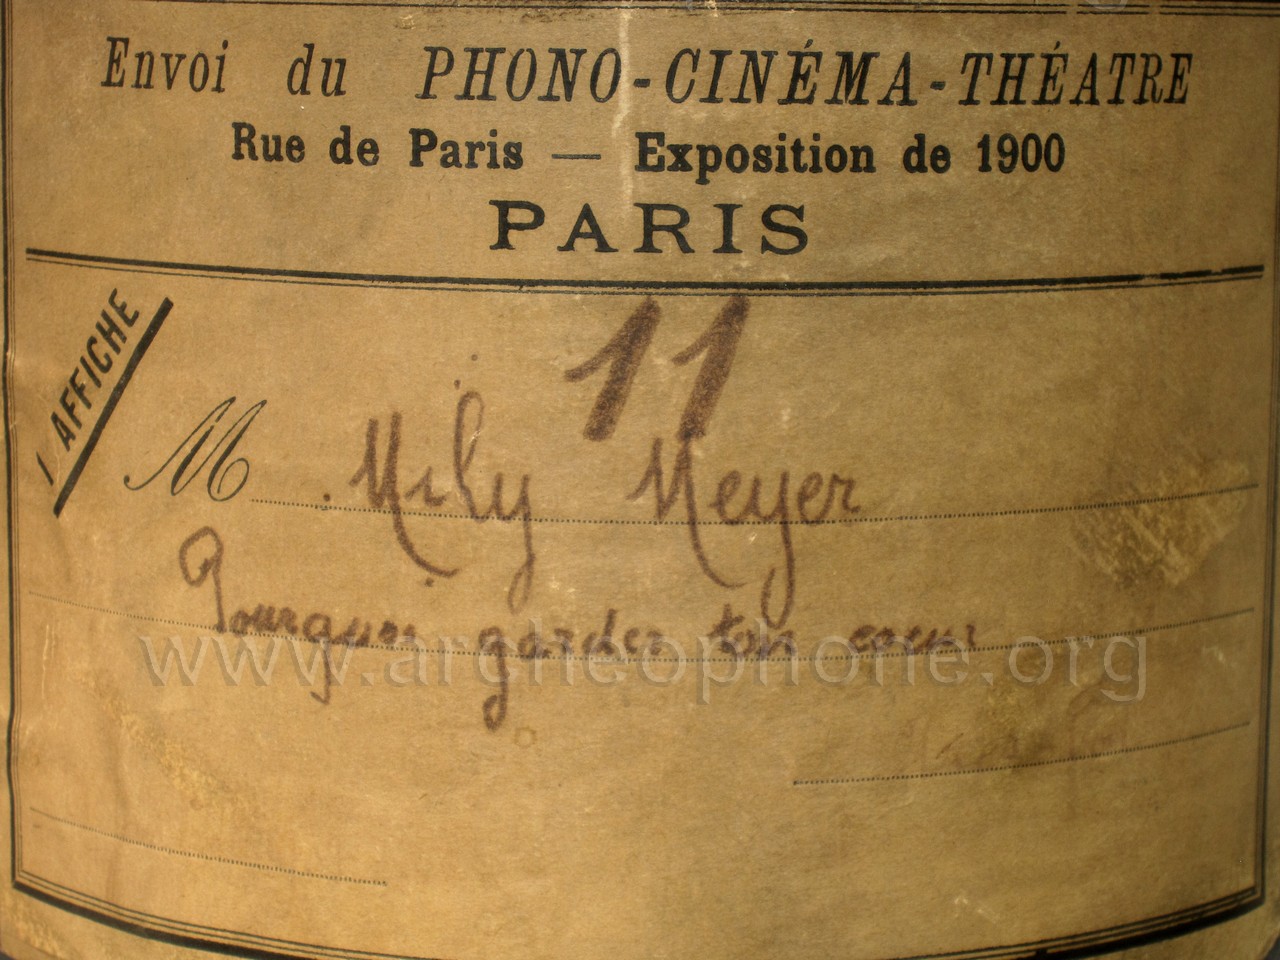 Envoi du PHONO-CINÉMA-THÉATRE
Rue de Paris — Exposition de 1900
PARIS
1 AFFICHE
11
M Mily Meyer
Pourquoi garder ton coeur
www.archeophone.org